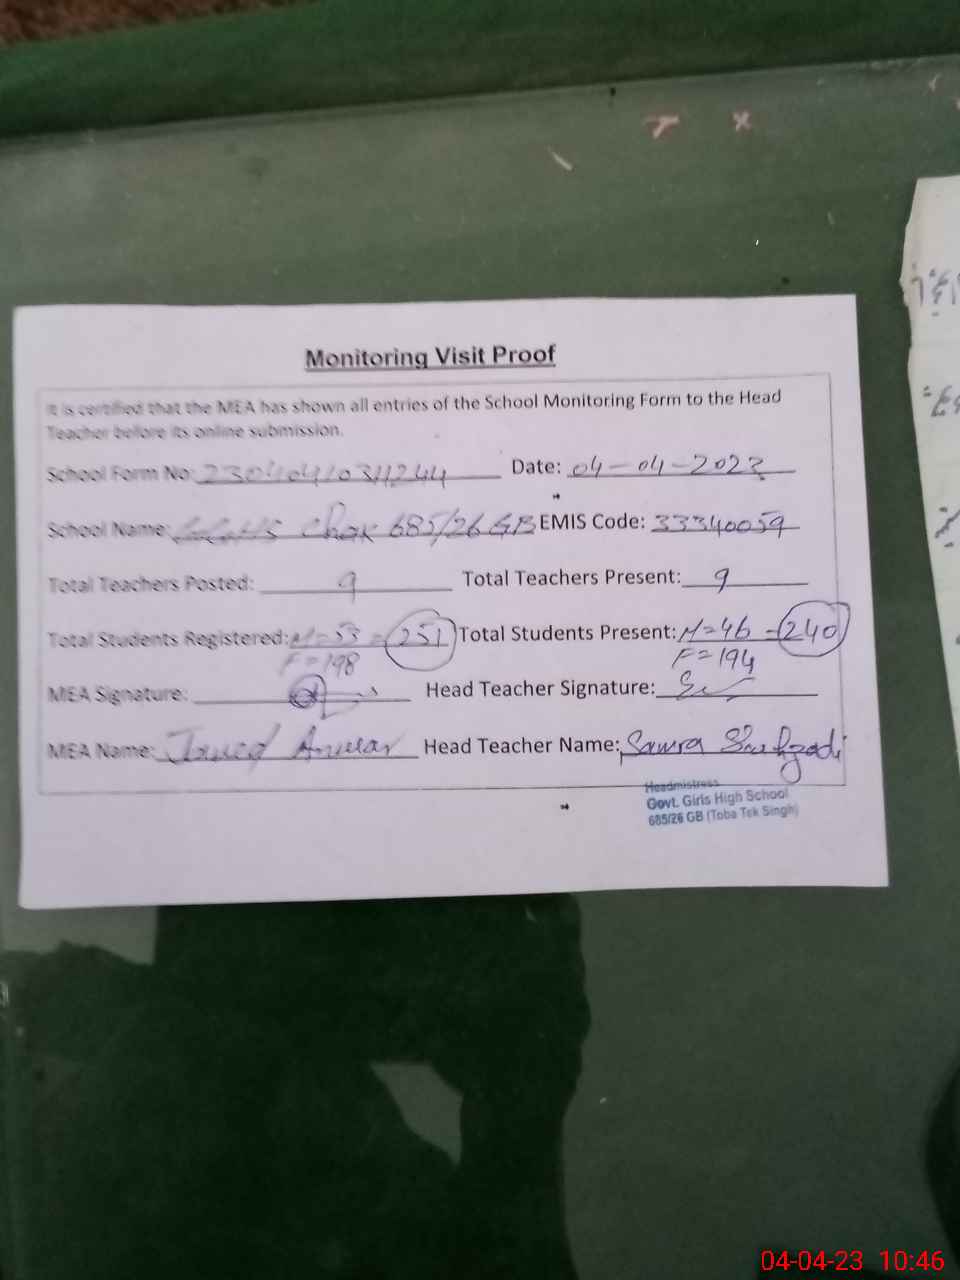 Monitoring Visit Proof
It is certified that the MEA has shown all entries of the School Monitoring Form to the Head
Teacher before its online submission.
School Form No: Date: 04-04-2023
School Name: Chak 685/26 GB EMIS Code: 33340059
Total Teachers Posted: 9 Total Teachers Present: 9
Total Students Registered: M=53 = 251 Total Students Present: M=46 = 240
F=198 F=194
MEA Signature: Head Teacher Signature:
MEA Name: Javed Anwar Head Teacher Name: Shehzadi
Headmistress
Govt. Girls High School
685/26 GB (Toba Tek Singh)
04-04-23 10:46